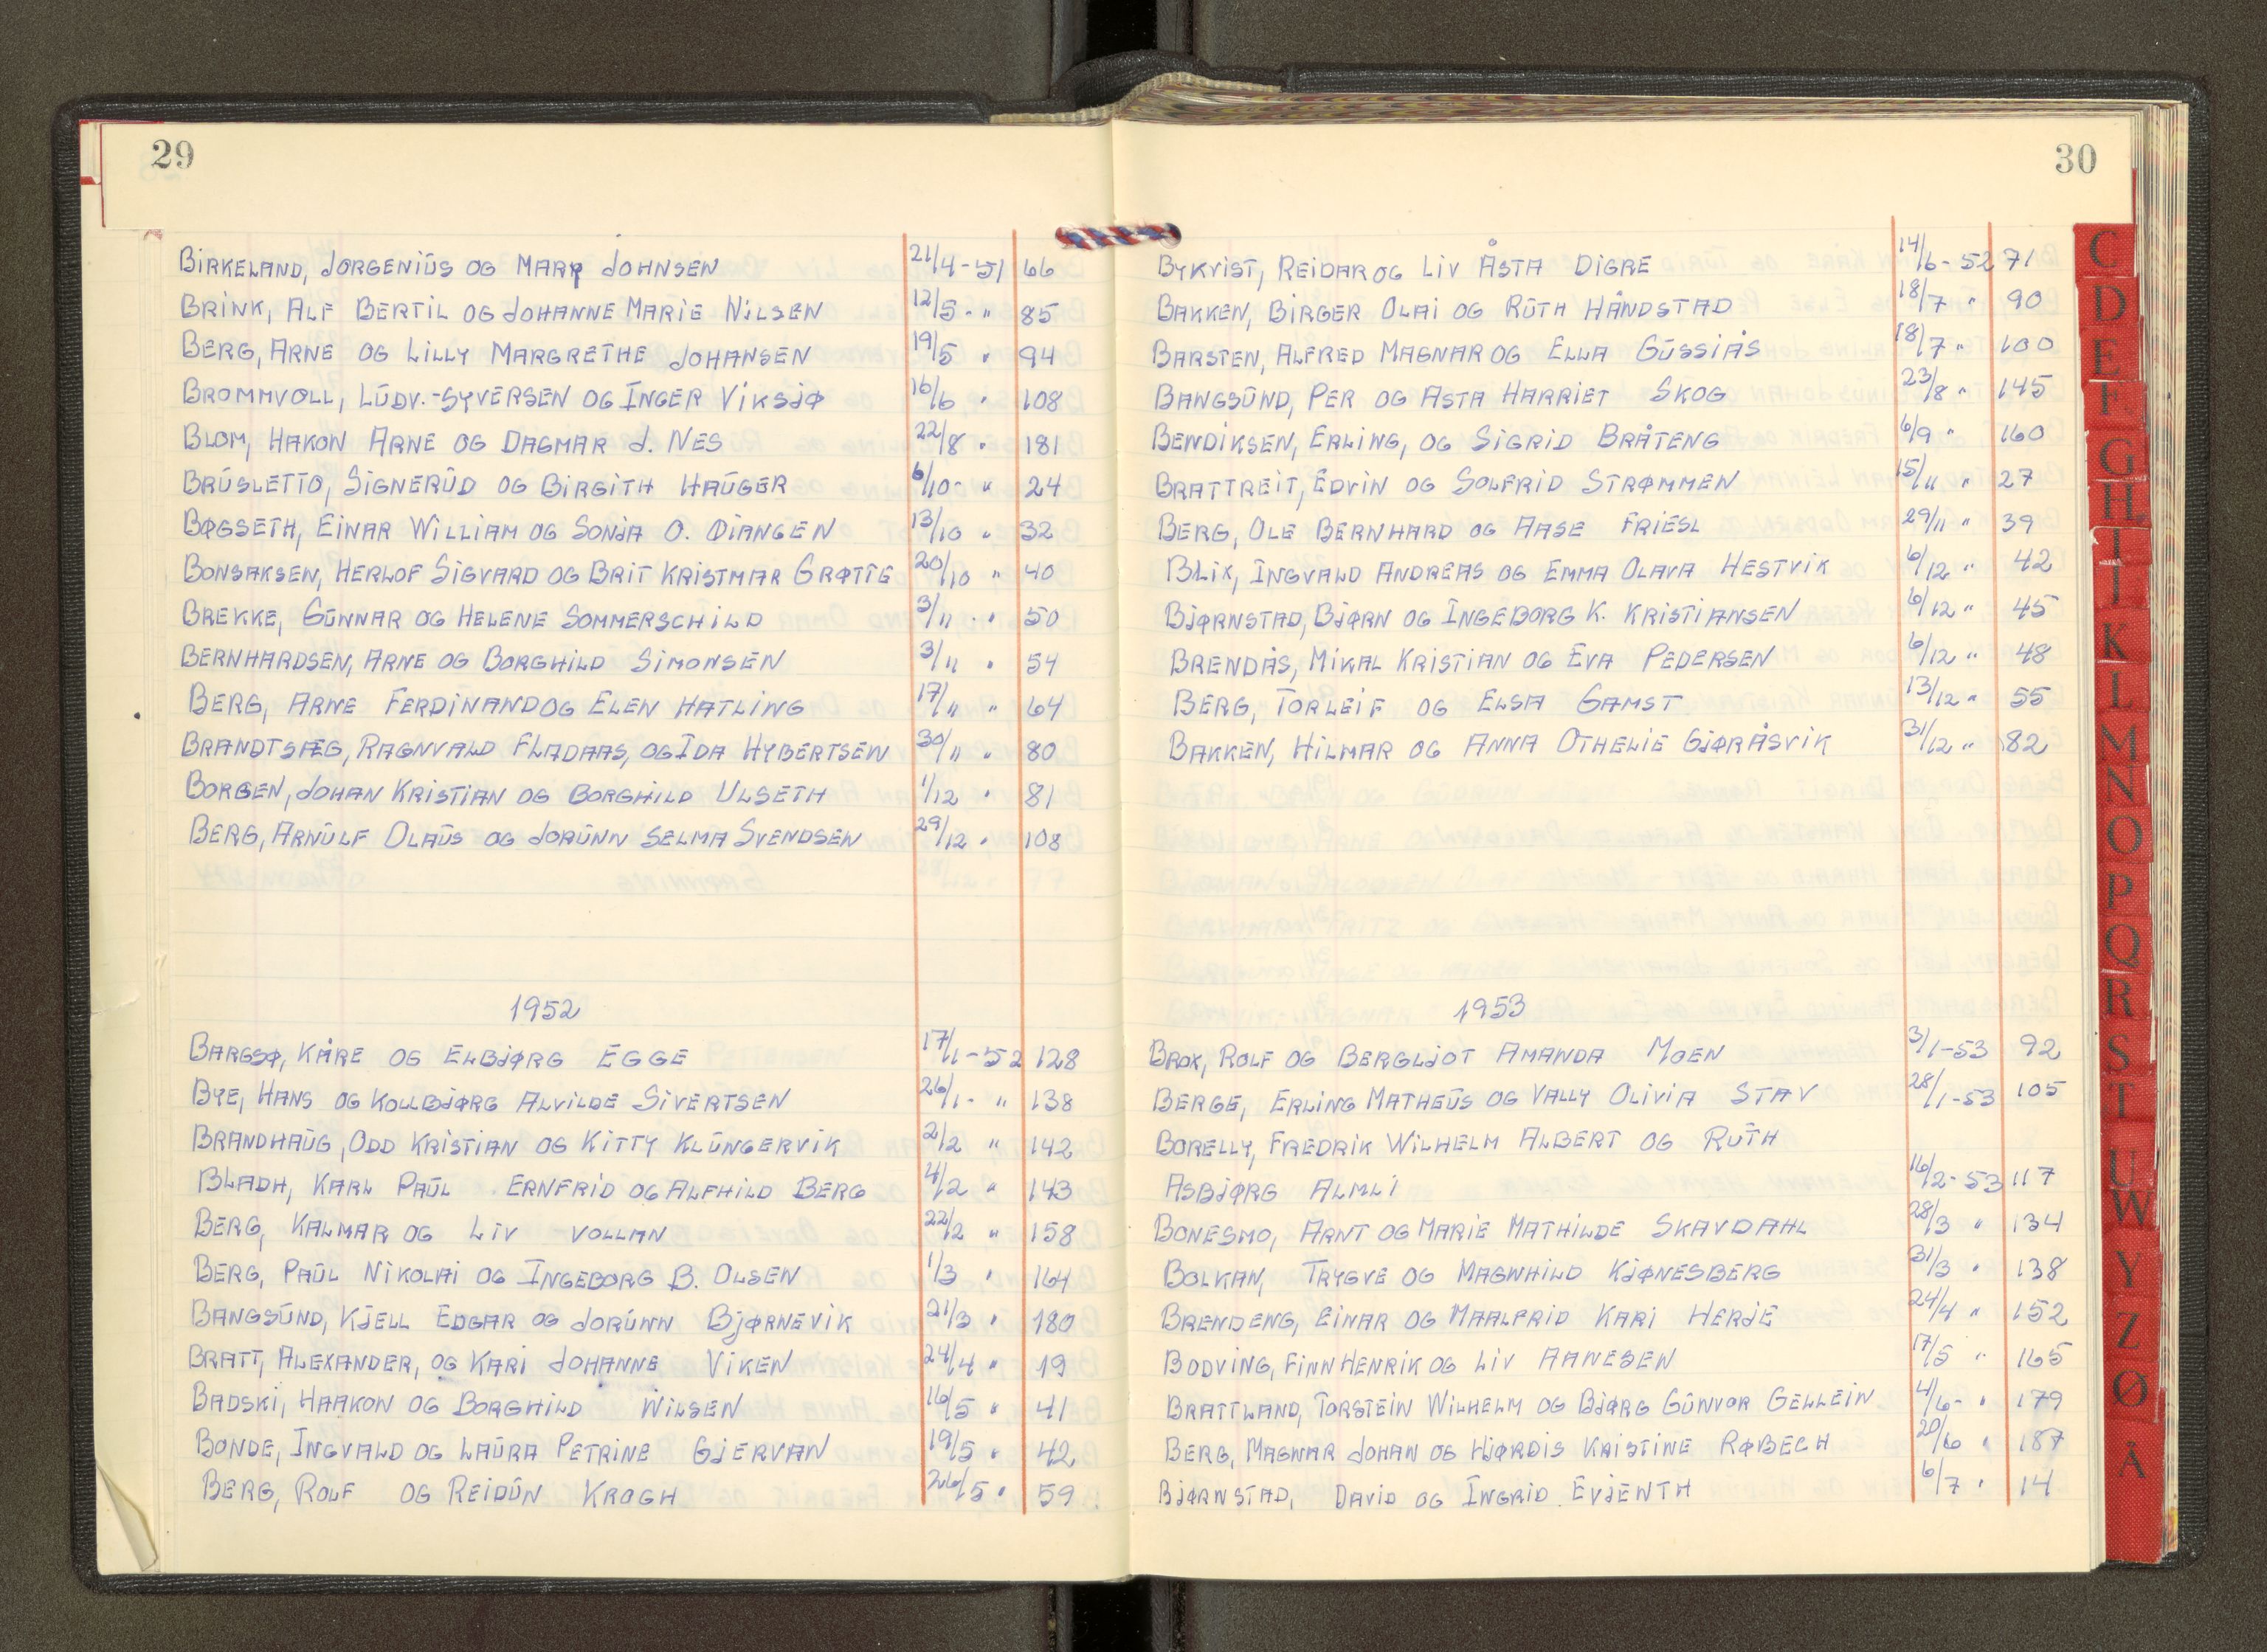 29
BIRKELAND, JORGENIUS OG MARY JOHNSEN 21/4-51 66
BRINK, ALF BERTIL OG JOHANNE MARIE NILSEN 12/5-" 85
BERG, ARNE OG LILLY MARGRETHE JOHANSEN 19/5 " 94
BROMMVOLL, LUDV.-SYVERSEN OG INGER VIKSJØ 16/6 " 108
BLOM, HAKON ARNE OG DAGMAR J. NES 22/8 " 181
BRUSLETTO, SIGNERUD OG BIRGITH HAUGER 6/10- " 24
BØGSETH, EINAR WILLIAM OG SONJA O. ØIANGEN 13/10 " 32
BONSAKSEN, HERLOF SIGVARD OG BRIT KRISTMAR GRØTTE 20/10 " 40
BREKKE, GUNNAR OG HELENE SOMMERSCHILD 3/11 " 50
BERNHARDSEN, ARNE OG BORGHILD SIMONSEN 3/11 " 54
BERG, ARNE FERDINAND OG ELEN HATLING 17/11 " 64
BRANDTSÆG, RAGNVALD FLADAAS, OG IDA HYBERTSEN 30/11 " 80
BORGEN, JOHAN KRISTIAN OG BORGHILD ULSETH 1/12 " 81
BERG, ARNULF OLAUS OG JORUNN SELMA SVENDSEN 29/12 " 108
1952
BARGSØ, KÅRE OG ELBJØRG EGGE 17/1-52 128
BYE, HANS OG KOLLBJØRG ALVILDE SIVERTSEN 26/1- " 138
BRANDHAUG, ODD KRISTIAN OG KITTY KLUNGERVIK 2/2 " 142
BLADH, KARL PAUL ERNFRID OG ALFHILD BERG 4/2 " 143
BERG, KALMAR OG LIV VOLLAN 22/2 " 158
BERG, PAUL NIKOLAI OG INGEBORG B. OLSEN 1/3 " 164
BANGSUND, KJELL EDGAR OG JORUNN BJØRNEVIK 21/3 " 180
BRATT, ALEXANDER, OG KARI JOHANNE VIKEN 24/4 " 19
BADSKI, HAAKON OG BORGHILD NILSEN 16/5 " 41
BONDE, INGVALD OG LAURA PETRINE GJERVAN 19/5 " 42
BERG, ROLF OG REIDUN KROGH 26/5 " 59
30
BYKVIST, REIDAR OG LIV ÅSTA DIGRE 14/6-52 71
BAKKEN, BIRGER OLAI OG RUTH HÅNDSTAD 18/7 " 90
BARSTEN, ALFRED MAGNAR OG ELLA GUSSIÅS 18/7 " 100
BANGSUND, PER OG ASTA HARRIET SKOG 23/8 " 145
BENDIKSEN, ERLING, OG SIGRID BRÅTENG 6/9 " 160
BRATTREIT, EDVIN OG SOLFRID STRØMMEN 15/11 " 27
BERG, OLE BERNHARD OG AASE FRIESL 29/11 " 39
BLIX, INGVALD ANDREAS OG EMMA OLAVA HESTVIK 6/12 " 42
BJØRNSTAD, BJØRN OG INGEBORG K. KRISTIANSEN 6/12 " 45
BRENDÅS, MIKAL KRISTIAN OG EVA PEDERSEN 6/12 " 48
BERG, TORLEIF OG ELSA GAMST 13/12 " 55
BAKKEN, HILMAR OG ANNA OTHELIE GJØRÅSVIK 31/12 " 82
1953
BROX, ROLF OG BERGLJOT AMANDA MOEN 3/1-53 92
BERGE, ERLING MATHEUS OG VALLY OLIVIA STAV 28/1-53 105
BORELLY, FREDRIK WILHELM ALBERT OG RUTH
ASBJØRG ALMLI 16/2-53 117
BONESMO, ARNT OG MARIE MATHILDE SKAVDAHL 28/3 " 134
BOLKAN, TRYGVE OG MAGNHILD KJØNESBERG 31/3 " 138
BRENDENG, EINAR OG MAALFRID KARI HERJE 24/4 " 152
BODVING, FINN HENRIK OG LIV AANESEN 17/5 " 165
BRATTLAND, TORSTEIN WILHELM OG BJØRG GUNVOR GELLEIN 4/6- " 179
BERG, MAGNAR JOHAN OG HJØRDIS KRISTINE RØBECH 20/6 " 187
BJØRNSTAD, DAVID OG INGRID EVJENTH 6/7 " 14
C
D
E
F
G
H
I
J
K
L
M
N
O
P
Q
R
S
T
U
W
Y
Z
Ø
Å